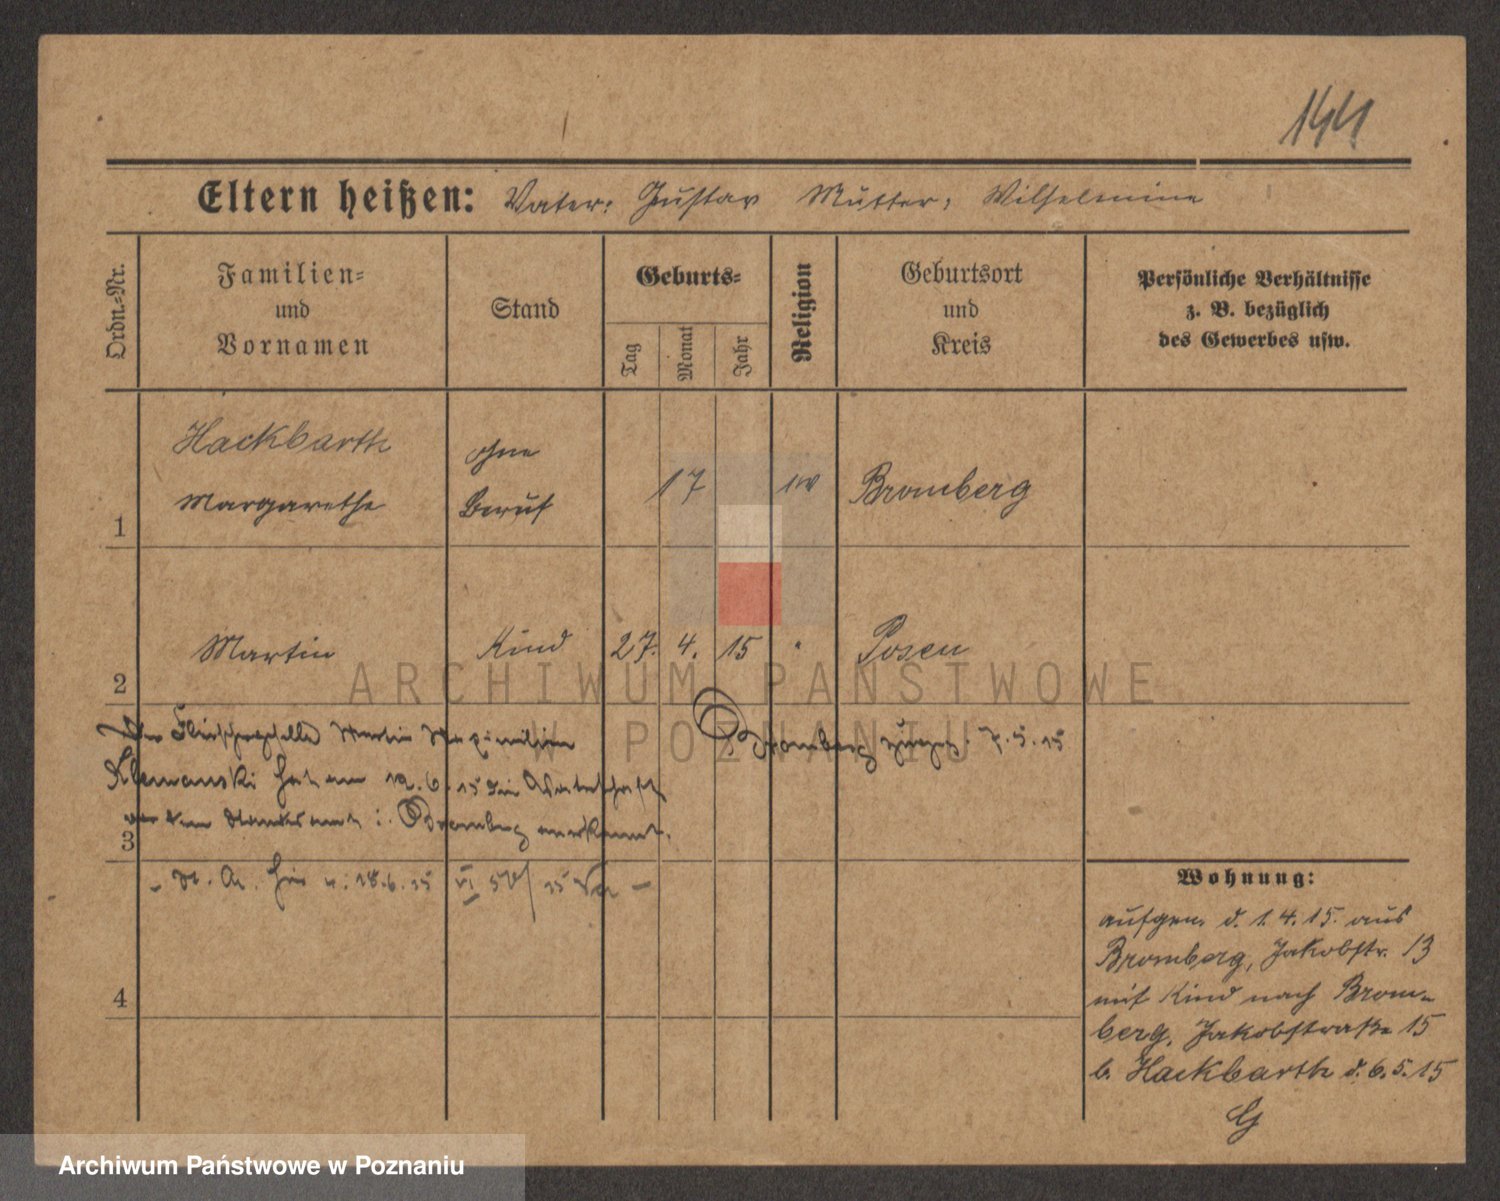 144
Eltern heißen: Vater: Gustav Mutter: Wilhelmine
Ordn.=Nr.
Familien=
und
Vornamen
Stand
Geburts=
Tag
Monat
Jahr
Religion
Geburtsort
und
Kreis
Persönliche Verhältnisse
z. B. bezüglich
des Gewerbes usw.
1
Hackbarth
Margarethe
ohne
Beruf
17
Bromberg
2
Martin
Kind
27.
4.
15
"
Posen
Bromberg 7.5.15
Der Fleischergeselle Martin Maximilian
Klemanski hat am 12.6.15 die Vaterschaft
vor dem Standesamt i. Bromberg anerkannt.
3
18.6.15 VI 15
4
Wohnung:
aufgen. d. 1.4.15. aus
Bromberg, Jakobstr. 13
mit Kind nach Brom-
berg, Jakobstraße 15
b. Hackbarth d. 6.5.15
G
ARCHIWUM PAŃSTWOWE
W POZNANIU
Archiwum Państwowe w Poznaniu